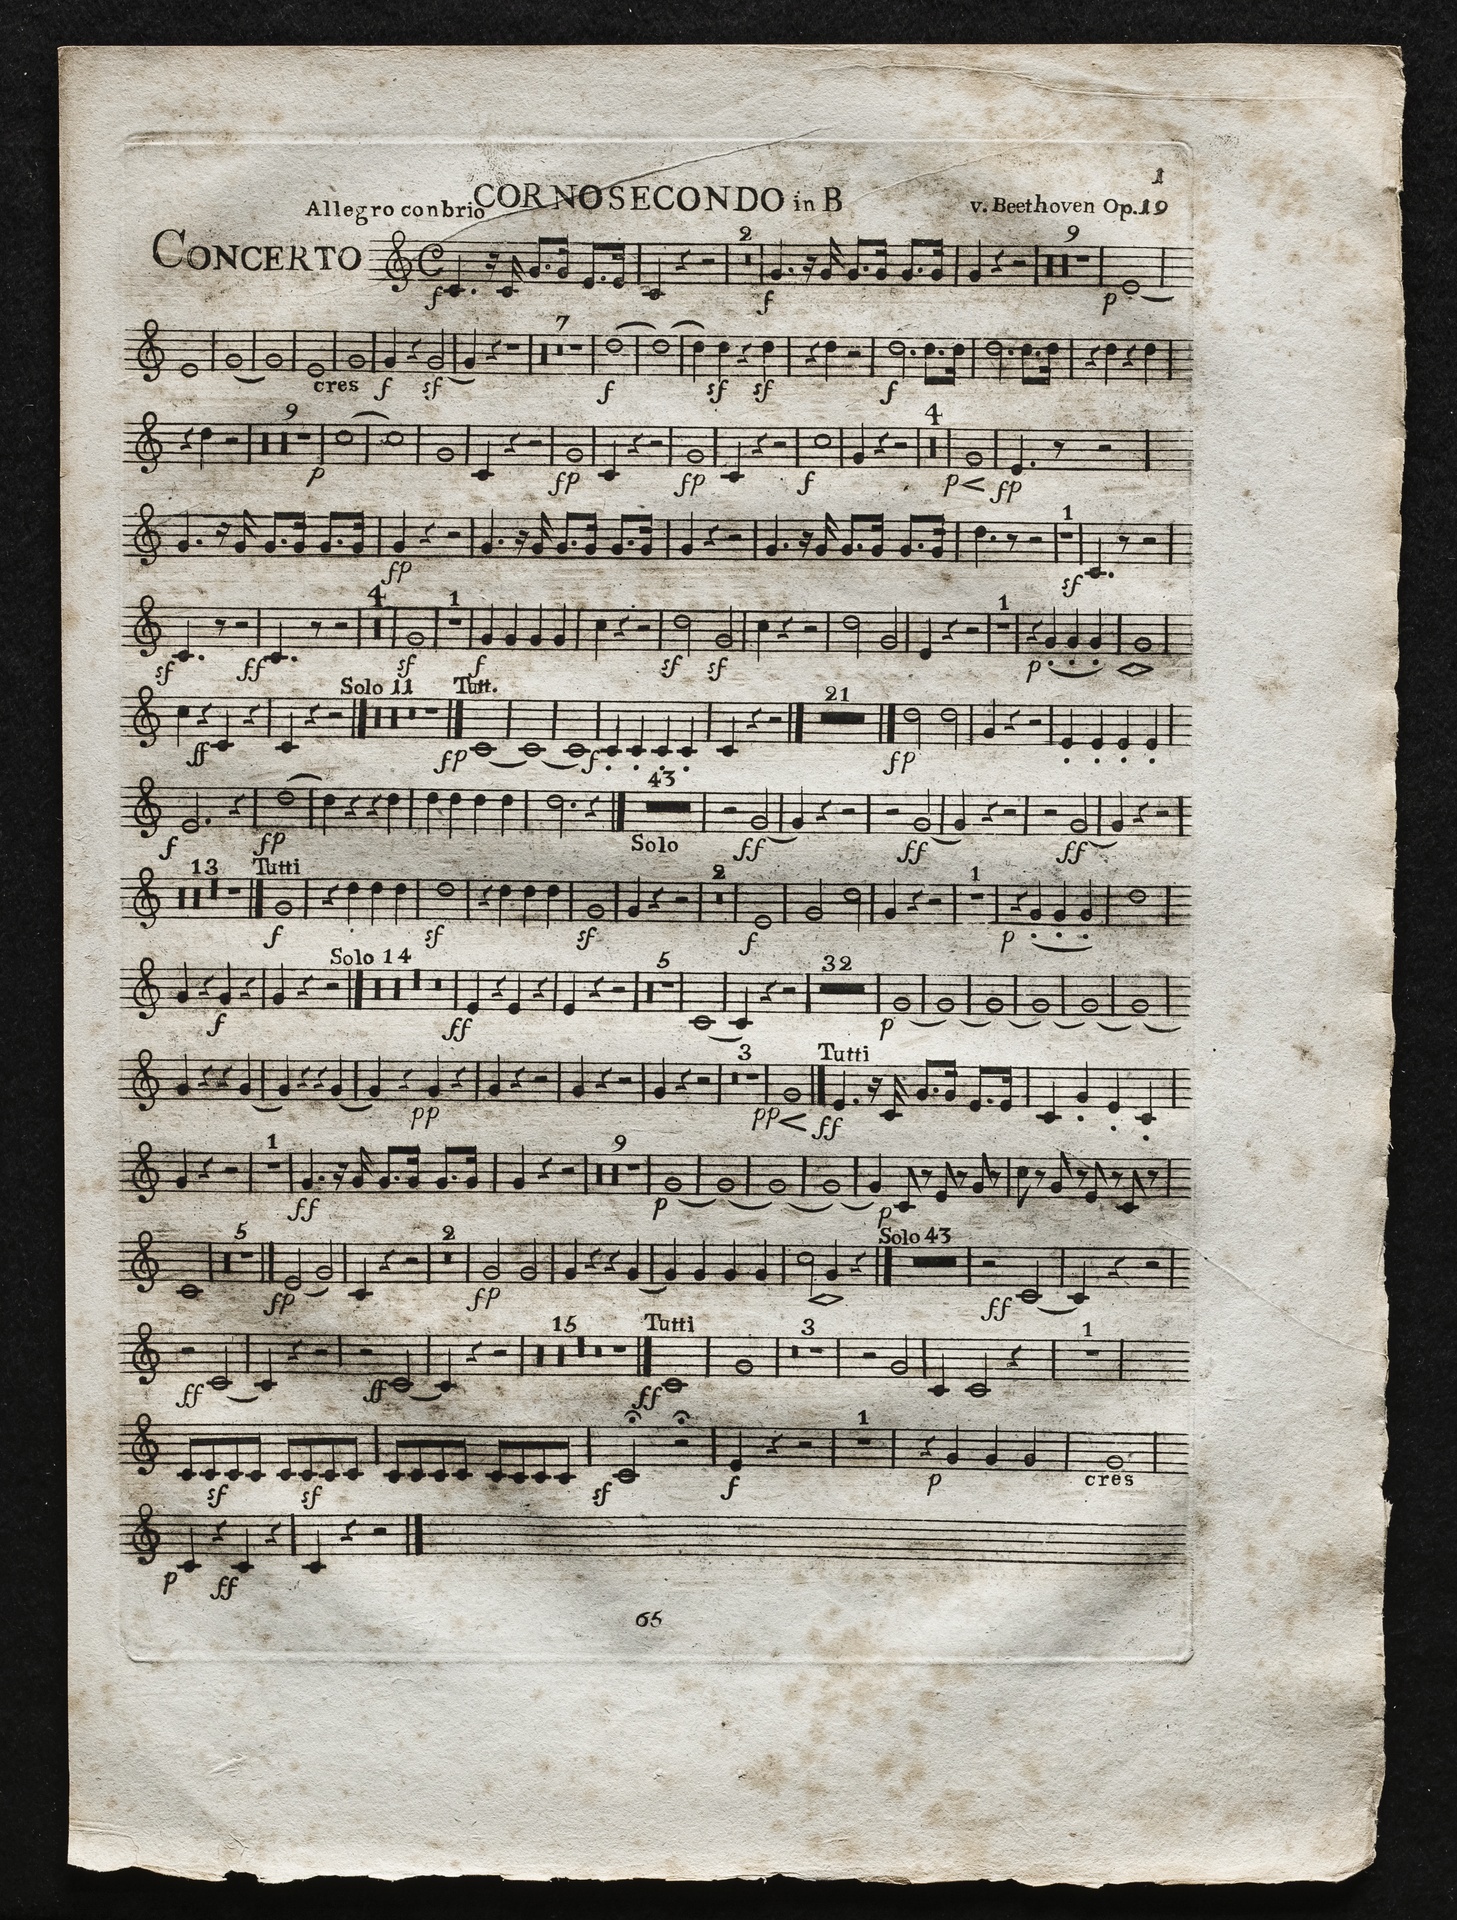 1
CORNO SECONDO in B
Allegro con brio v. Beethoven Op.19
CONCERTO 2 9
f f p
7
cres f sf f sf sf f
9 4
p fp fp f p fp
1
fp sf
4 1 1
sf ff sf f sf sf p
Solo 11 Tutt. 21
ff fp f fp
43
f fp Solo ff ff ff
13 Tutti 2 1
f sf sf f p
Solo 14 5 32
f ff p
3 Tutti
pp pp ff
1 9
ff p p
5 2 Solo 43
fp fp ff
15 Tutti 3 1
ff ff ff
1
sf sf sf f p cres
p ff
65